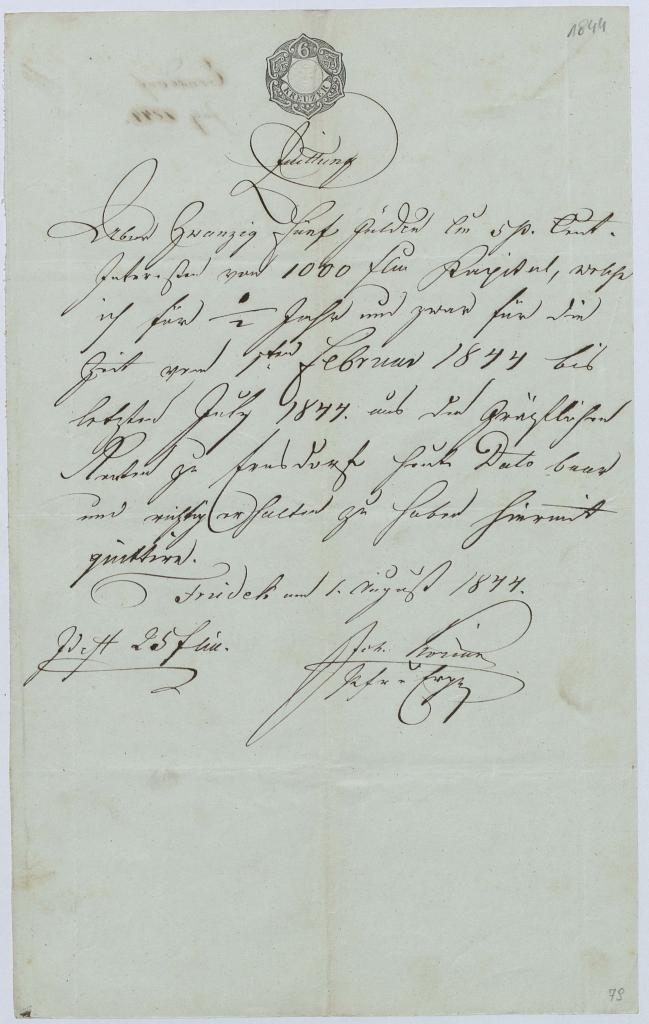 1844
6
KREUZER
Quittung
Über Zwanzig Fünf Gulden CM 5 p. Cent.
Interessen von 1000 f CM Kapital, welche
ich für ½ Jahr und zwar für die
Zeit vom 1ten Februar 1844 bis
letzten July 1844. aus den Gräflichen
Renten zu Ernsdorf heute Dato baar
und richtig erhalten zu haben hiermit
quittire.
Friedek am 1. August 1844.
Id est 25 f CM.
Joh.
79